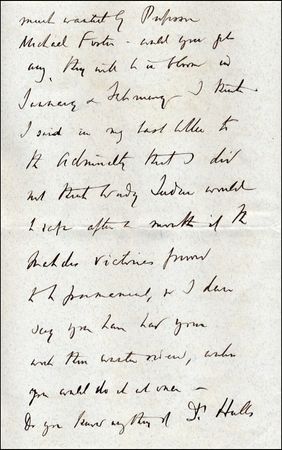 much wanted by Professor
Michael Foster - could you get
any. They will be in bloom in
January & February - I think
I said in my last letter to
the Admiralty that I did
not think Wady Sudan would
be safe after a month if the
Mahdi's victories proved
to be permanent, so I dare
say you have had your
work there, unless
you could do it at once -
Do you know anything of Dr. Hulls